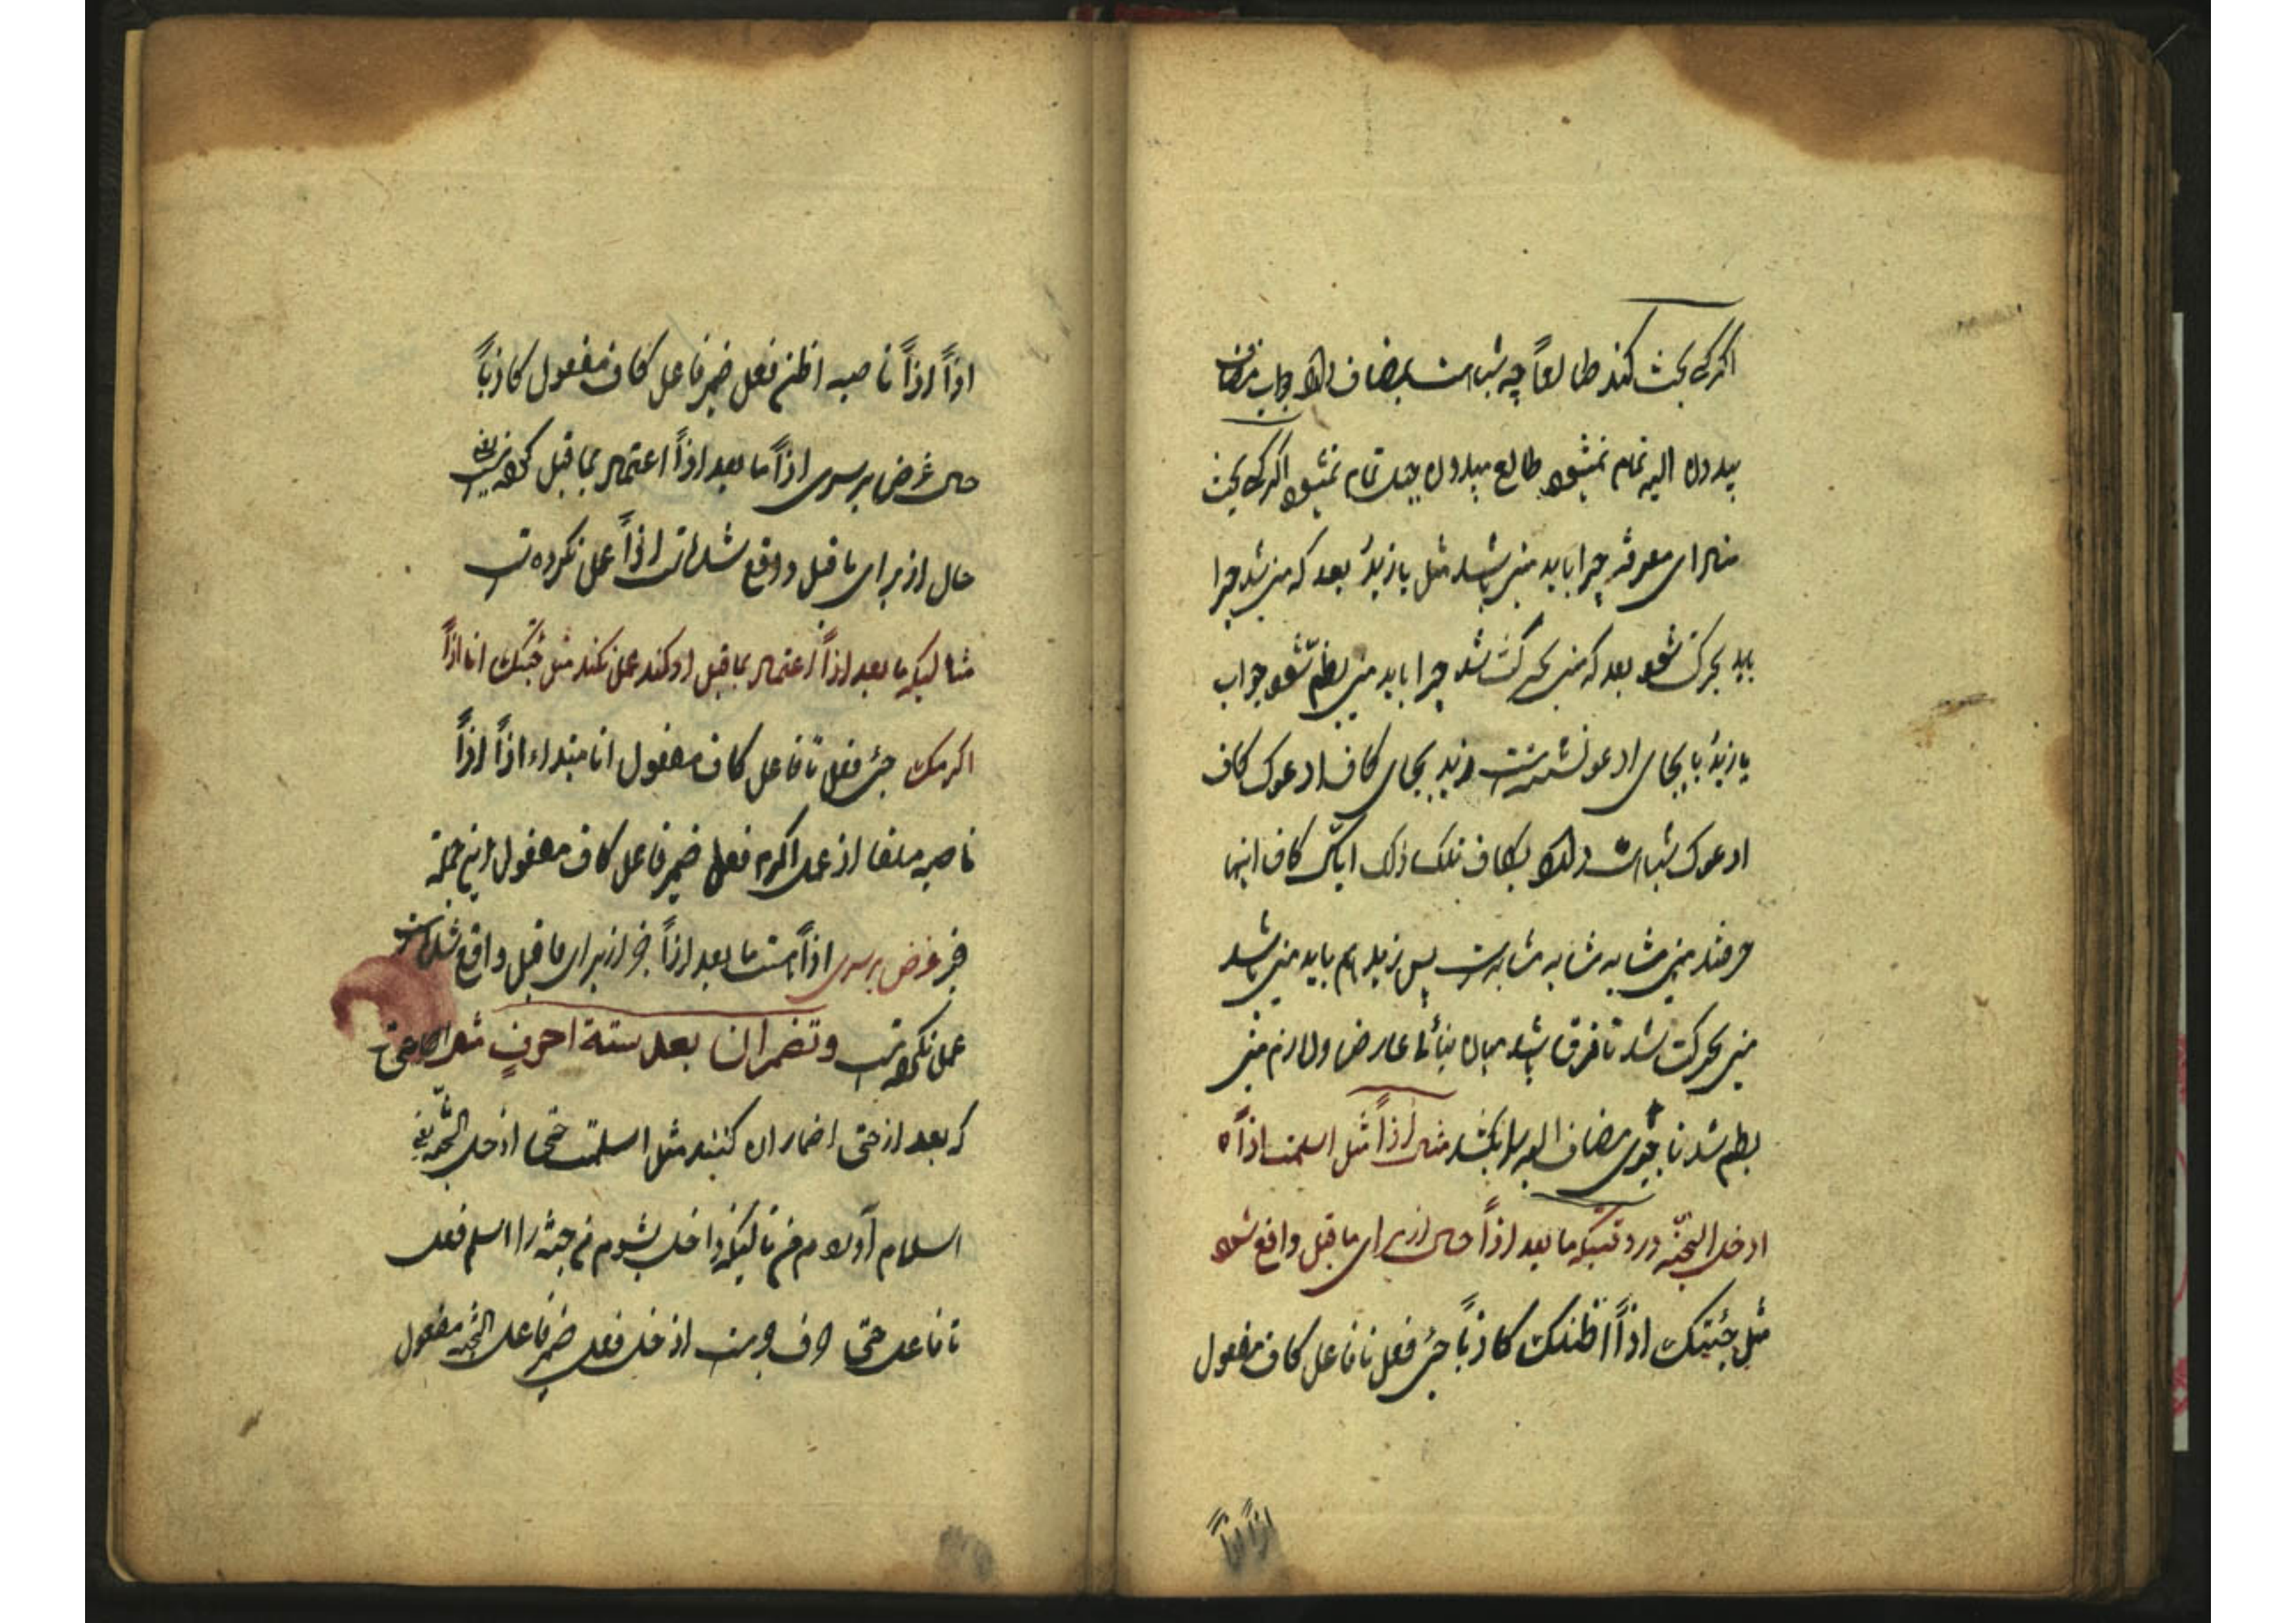 اگر کسی بحث کند طالعاً چه شباهت بمضاف دارد جواب مضاف
بیدون الیه تمام نمیشود طالع بیدون جبلا تمام نمیشود اگر کسی بحث
منادای معرفه چرا باید مبنی باشد مثل یا زیدُ بعد که مبنی شد چرا
باید بحرکت شود بعد که مبنی بحرکت شد چرا باید مبنی بضم شود جواب
یا زیدُ یا بجای ادعو نشسته است زید بجای کاف ادعوک کاف
ادعوک شباهت دارد بکاف تلک ذلک ایاک کاف اینها
حرفند مبنی مشابه مشابه مشابه است پس زید هم باید مبنی باشد
مبنی بحرکت شد تا فرق باشد میان بنائنا عارض و لازم مبنی
بضم شد تا بوی مضاف الیه را بکشد مثال اذاً مثل اسلمت اذاً
ادخل الجنّة در وقتیکه ما بعد اذاً حال از برای ما قبل واقع شود
مثل جئتک اذاً اظنک کاذباً جئ فعل تا فاعل کاف مفعول
اذاً اذاً
اذاً اذاً ناصبه اظن فعل ضمیر فاعل کاف مفعول کاذباً
حال غرض بر سر اذاً ما بعد اذاً اعتماد بما قبل کرده است یعنی
حال از برای ما قبل واقع شده است اذاً عمل نکرده است
مثالیکه ما بعد اذاً اعتماد بما قبل او کند عمل نکند مثل جئتک انا اذاً
اکرمک جئ فعل تا فاعل کاف مفعول انا مبتداء اذاً اذاً
ناصبه ملغا از عمل اکرم فعل ضمیر فاعل کاف مفعول این جمله
خبر غرض بر سر اذاً است ما بعد اذاً خبر از برای ما قبل واقع شده است
عمل نکرده است وتضمر ان بعد ستة احرفٍ حتی
که بعد از حتی اضمار ان کنند مثل اسلمت حتی ادخل الجنّة یعنی
اسلام آوردم من تا اینکه داخل بشوم من جنّه را اسلم فعل
تا فاعل حتی حرف جر است ادخل فعل ضمیر فاعل الجنّة مفعول